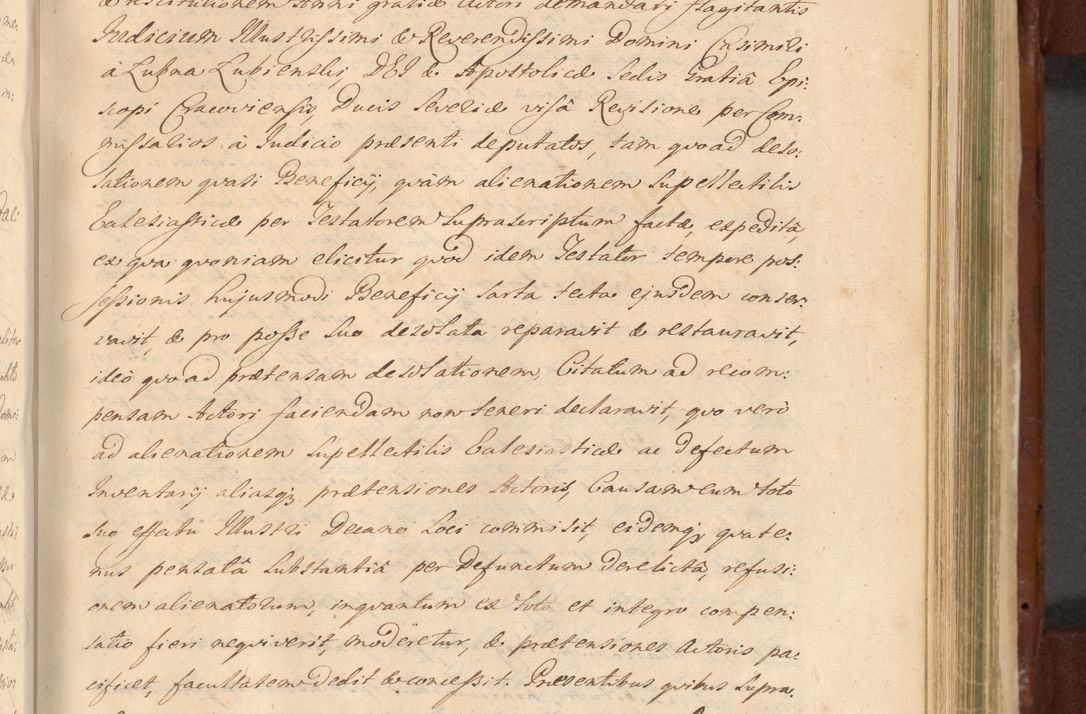 & restitutionem Anni gratiæ Actori demandari flagitantis
Judicium Illustrissimi & Reverendissimi Domini Casimiri
à Łubna Łubienski, DEI & Apostolicæ Sedis Gratiâ Epi:
scopi Cracoviensis, Ducis Severiæ visâ Revisione per Com:
missarios à Judicio præsenti deputatos, tàm quoad deso:
lationem quasi Beneficij, quàm alienationem Supellectilis
Ecclesiasticæ per Testatorem Suprascriptum factæ, expeditâ,
ex qua quoniam elicitur quòd idem Testator tempore pos:
sessionis hujusmodi Beneficij sarta tecta ejusdem conser:
vavit, & pro posse suo desolata reparavit & restauravit,
ideò quoad prætensam desolationem, Citatum ad recom:
pensam Actori faciendam non teneri declaravit, quo verò
ad alienationem Supellectilis Ecclesiasticæ ac Defectum
Inventarij aliasq; prætensiones Actoris, Causam cum toto
suo effectu Illustri Decano Loci commisit, eidemq; quate:
nus pensatâ Substantiâ per Defunctum derelictâ, refusi:
onem alienatorum, inquantum ex toto et integro compen:
satio fieri nequiverit, moderetur, & prætensiones Actoris pa:
cificet, facultatem dedit & concessit. Præsentibus quibus Supra.